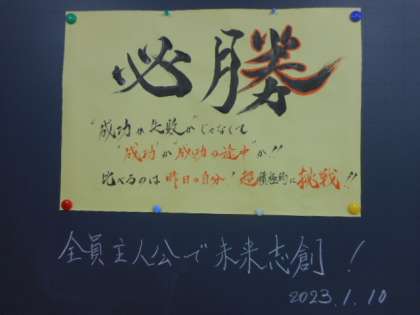 必勝
"成功か失敗か"じゃなくて
"成功"か"成功の途中"か!!
比べるのは昨日の自分!超積極的に挑戦!!
全員主人公で未来志創!
2023.1.10